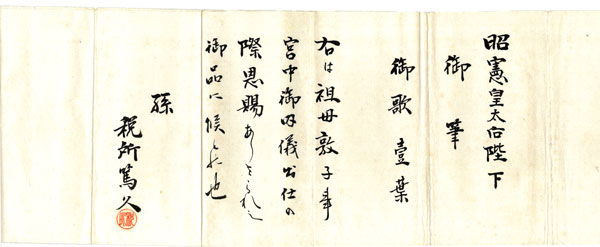 昭憲皇太后陛下
御筆
御歌壹葉
右は祖母敦子事
宮中御内儀公仕の
際恩賜あらせられし
御品に候也
孫
税所篤久